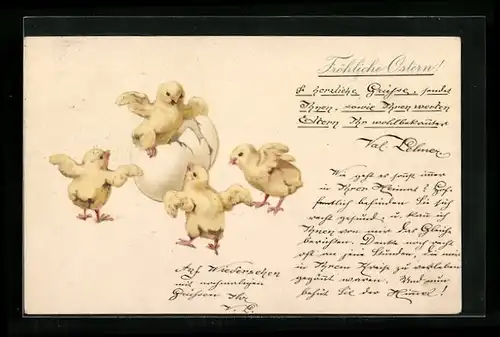 Fröhliche Ostern!
& herzliche Grüsse, sendet
Ihnen, sowie Ihren werten
Eltern Ihr wohlbekannter
Val. Lelmer
Wie geht es sonst immer
in Ihrer Heimat? Hof-
fentlich befinden Sie sich
recht gesund, u. kann ich
Ihnen von mir das Gleiche
berichten. Denke noch recht
oft an jene Stunden, die mir
in Ihrem Kreise zu verleben
gegönnt waren. Und nun
behüt Sie der Himmel!
Auf Wiedersehen
mit nochmaligen
Grüssen Ihr
V. L.